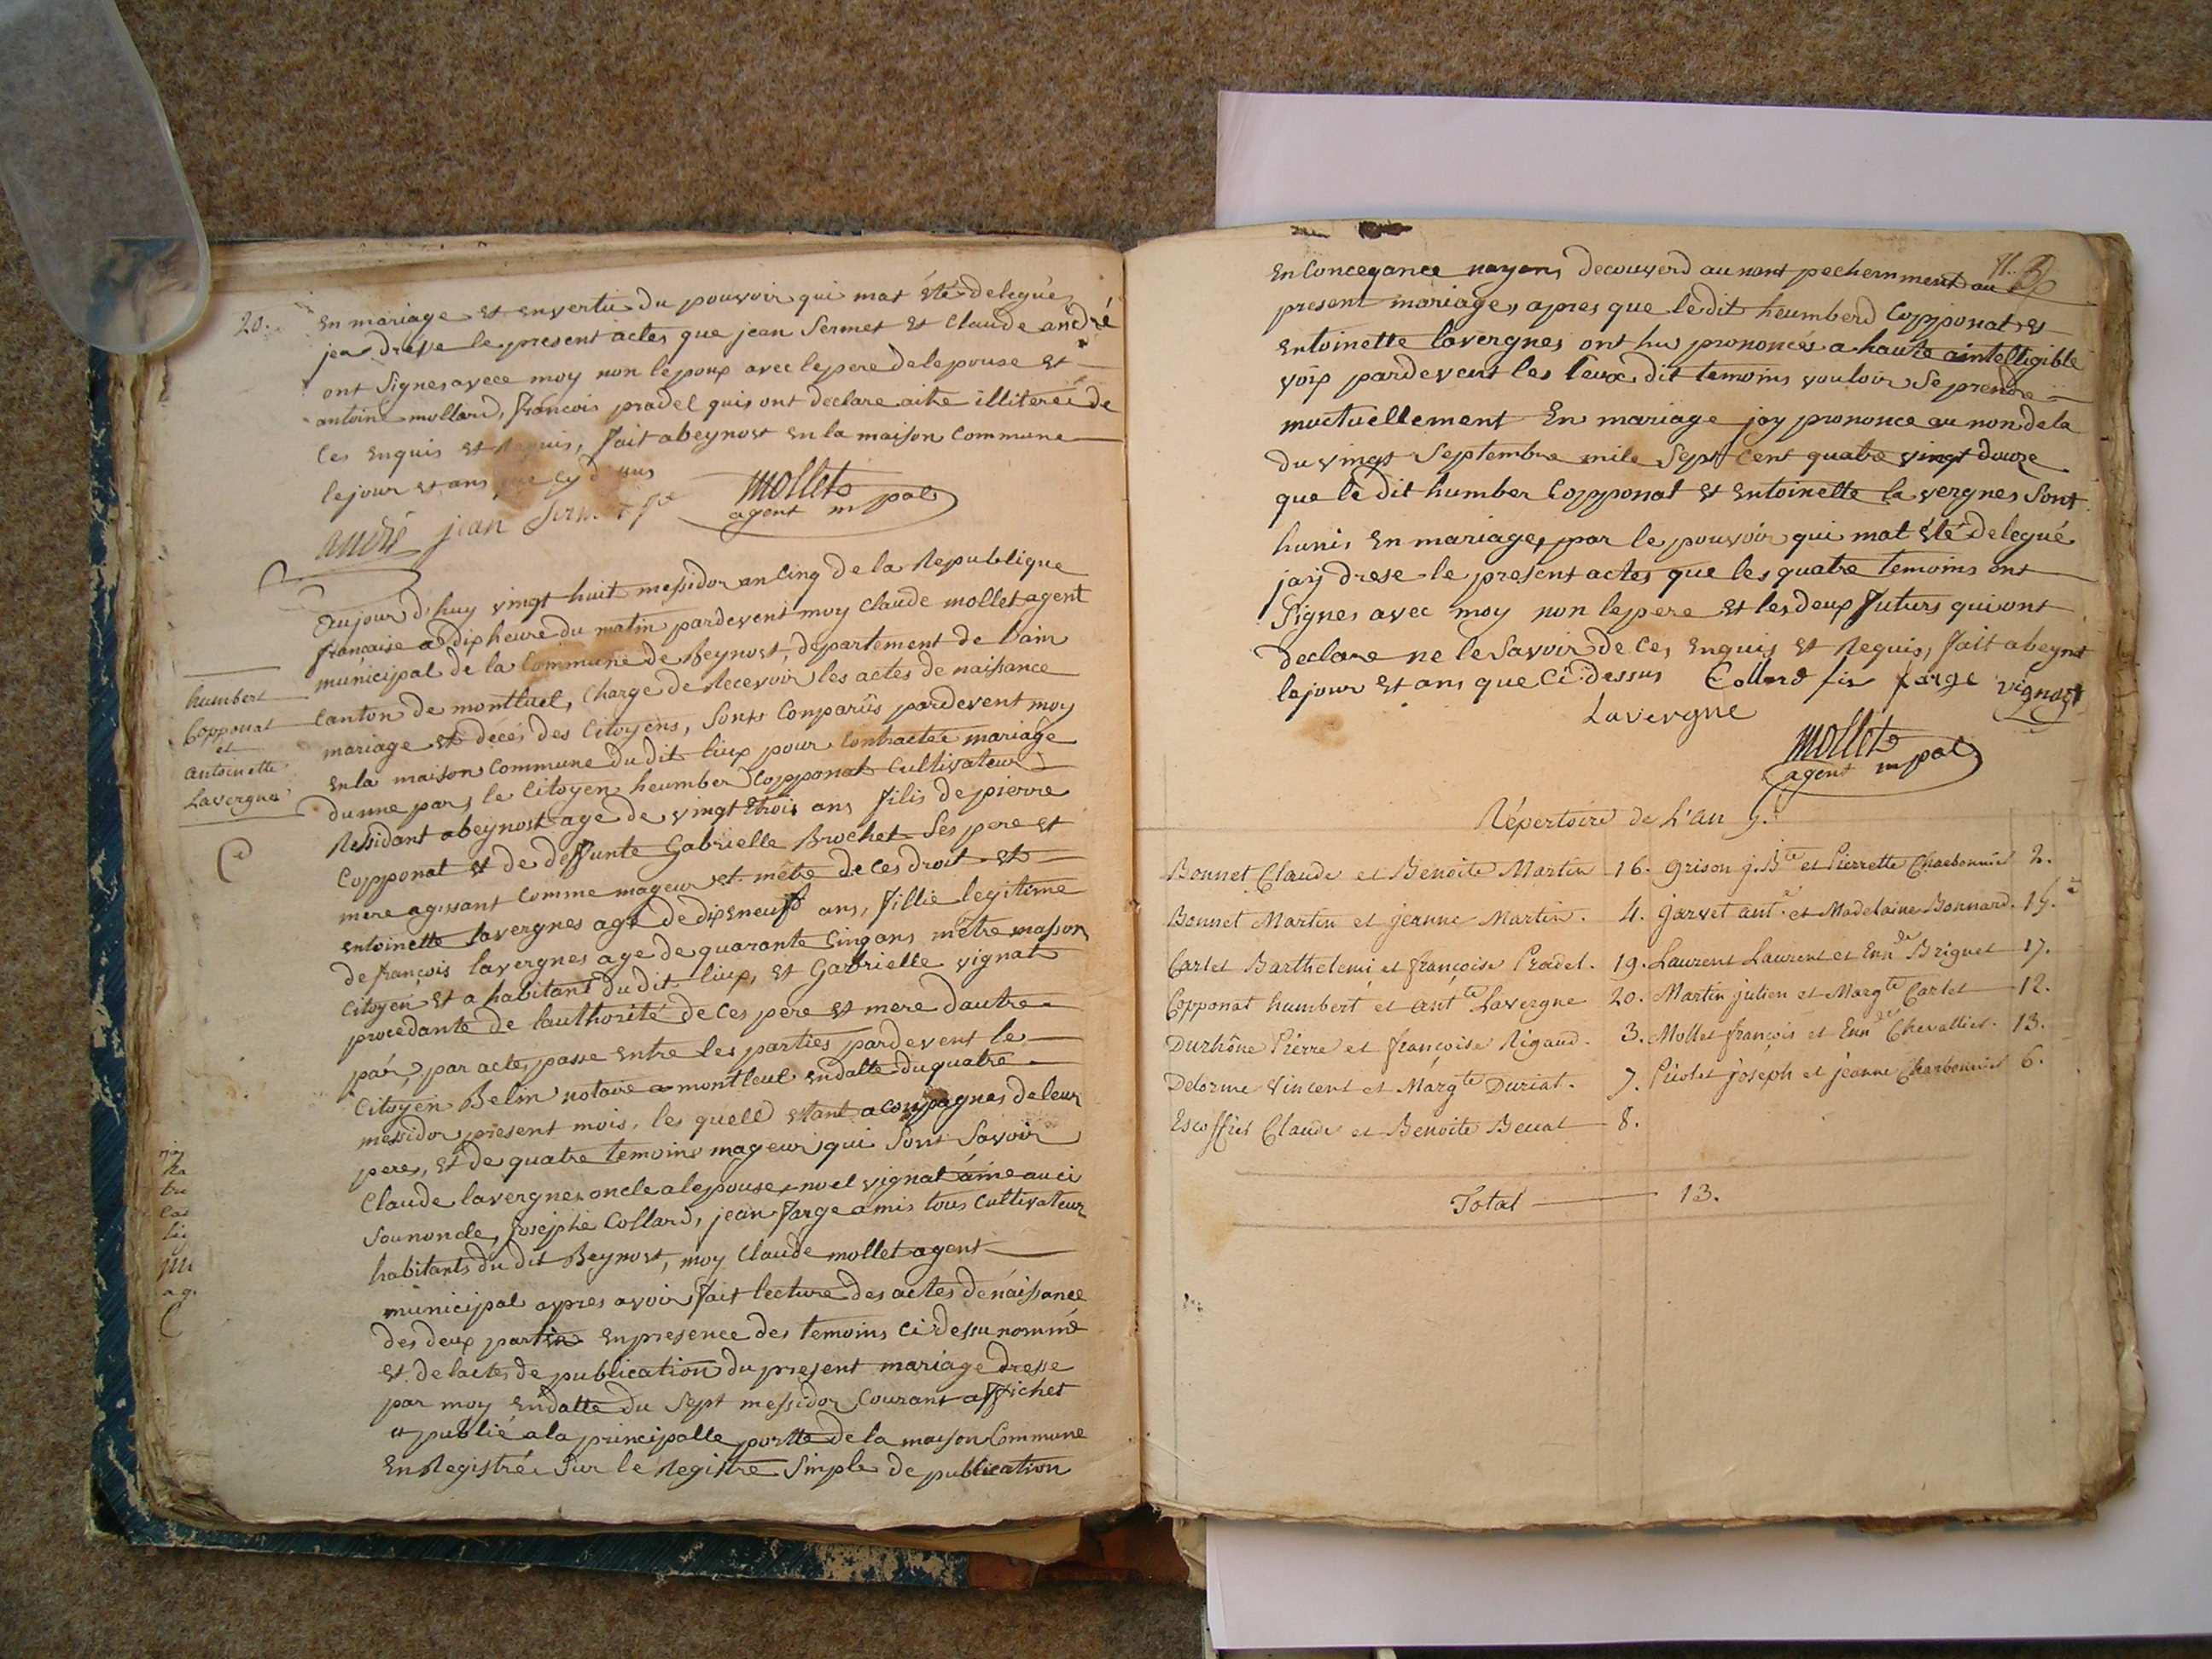 20.
En mariage et envertu du pouvoir qui mat été delegué
jea dresse le present actes que jean Sermet Et Claude andré
ont Signes avece moy non lepoux avec le pere de lepouse et
antoine mollard, francois pradel quis ont declare aitre illiterée de
Ces Enquis et Requis, fait abeynost En la maison Commune
lejour et ans que cy d sus
andré jean Serm
mollet
agent mpal
Aujourd'huy vingt huit messidor an Cinq de la Republique
francaise a dix heure du matin pardevent moy Claude mollet agent
municipal de la Commune de Beynost, departement de lain
Canton de montluel, Charge de Recevoir les actes de naissance
mariage et décés des Citoyens, Sonts Comparûs pardevent moy
En la maison Commune du dit liux pour Contracter mariage
dunne part le Citoyen heumber Copponat Cultivateur
Ressidant abeynost age de vingt Etrois ans filis de pierre
Copponat et de deffunte Gabrielle Brochet Ses pere et
mere agissant Comme mageur et métre de ces droit et
entoinette lavergnes agé de dixeneuf ans, fillie legitime
de françois lavergnes age de quarante Cinq ans métre masson
Citoyen et a habitant du dit liux, et Gabrielle vignat
procedante de lauthorité de Ces pere et mere dautre
pár, par acte passe Entre les parties pardevent le
Citoyen Belin notaire a montleul endatte du quatre
messidor present mois, les quelle Etant acompagnes de leur
pere, et de quatre temoins mageur qui Sont Savoir
Claude lavergnes oncle alepouse, noel vignat aine auci
Sounoncle, Josephe Collard, jean farge amis tous Cultivateur
habitants du dit Beynost, moy Claude mollet agent
municipal apres avoir fait lecture des actes de naissance
des deux partie En presence des temoins Ci dessu nommé
et de lactes de publication du present mariage dresse
par moy Endatte du Sept messidor Courant affichet
et publié ala principalle portte de la maison Commune
En Registrée Sur le Registre Simple de publication
humbert
Copponat
et
antoinette
Lavergne
En Concegance nayans decouverd aunont pechernment au
present mariage, apres que le dit heumberd Copponat et
Entoinette lavergnes ont hu prononcés a haute aintelligible
voix pardevent les Ceux dit temoins vouloir Se prendre
muctuellement En mariage jay prononce au non dela
du vingt Septembre mile Sept Cent quatre vingt douze
que le dit humber Copponat et Entoinette la vergnes Sont
hunis En mariage, par le pouvoir qui mat été delegué
jaÿ drese le present actes que les quatre temoins ont
Signes avec moy non lepere Et les deux futurs qui ont
declare ne le Savoir de Ces Enquis et Requis, fait abeynt
lejour et ans que Ci-dessus Collard fis farge vignat
Lavergne
mollet
agent mpal
Répertoire de L'an 5.
Bonnet Claude et Benoite Martin 16. grison j. Bte et Pierrette Charbonnier 2.
Bonnet Martin et jeanne Martin. 4. jarvet ant. et Madelaine Bonnard. 15.
Carlet Barthelemi et françoise Pradel. 19. Laurent Laurent et Briguet 17.
Copponat humbert et antte Lavergne 20. Martin julien et Margte Carlet 12.
Durhône Pierre et françoise Rigaud. 3. Mollet françois et Chevallier. 13.
Delorme Vincent et Margte Duriat. 7. Piolet joseph et jeanne Charbonnier 6.
Escoffier Claude et Benoite Beuat 8.
Total 13.